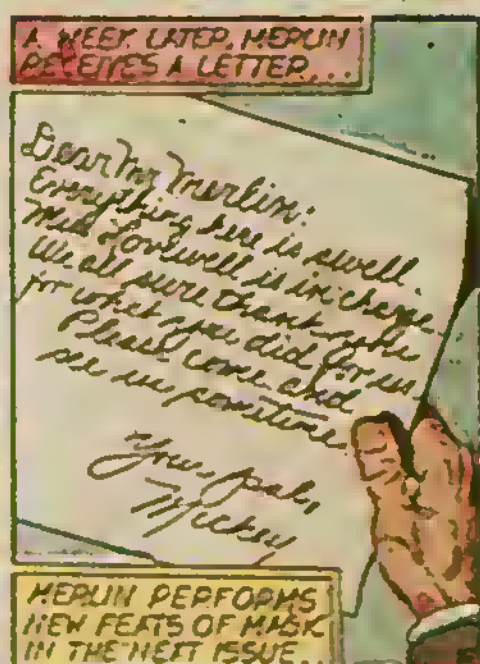 A WEEK LATER, MERLIN
RECEIVES A LETTER...
Dear Mr Merlin:
Everything here is swell.
Miss Lovewell is in charge.
We all sure thank you
for what you did for us.
Please come and
see us sometime.
Your pal,
Mickey
MERLIN PERFORMS
NEW FEATS OF MAGIC
IN THE NEXT ISSUE...